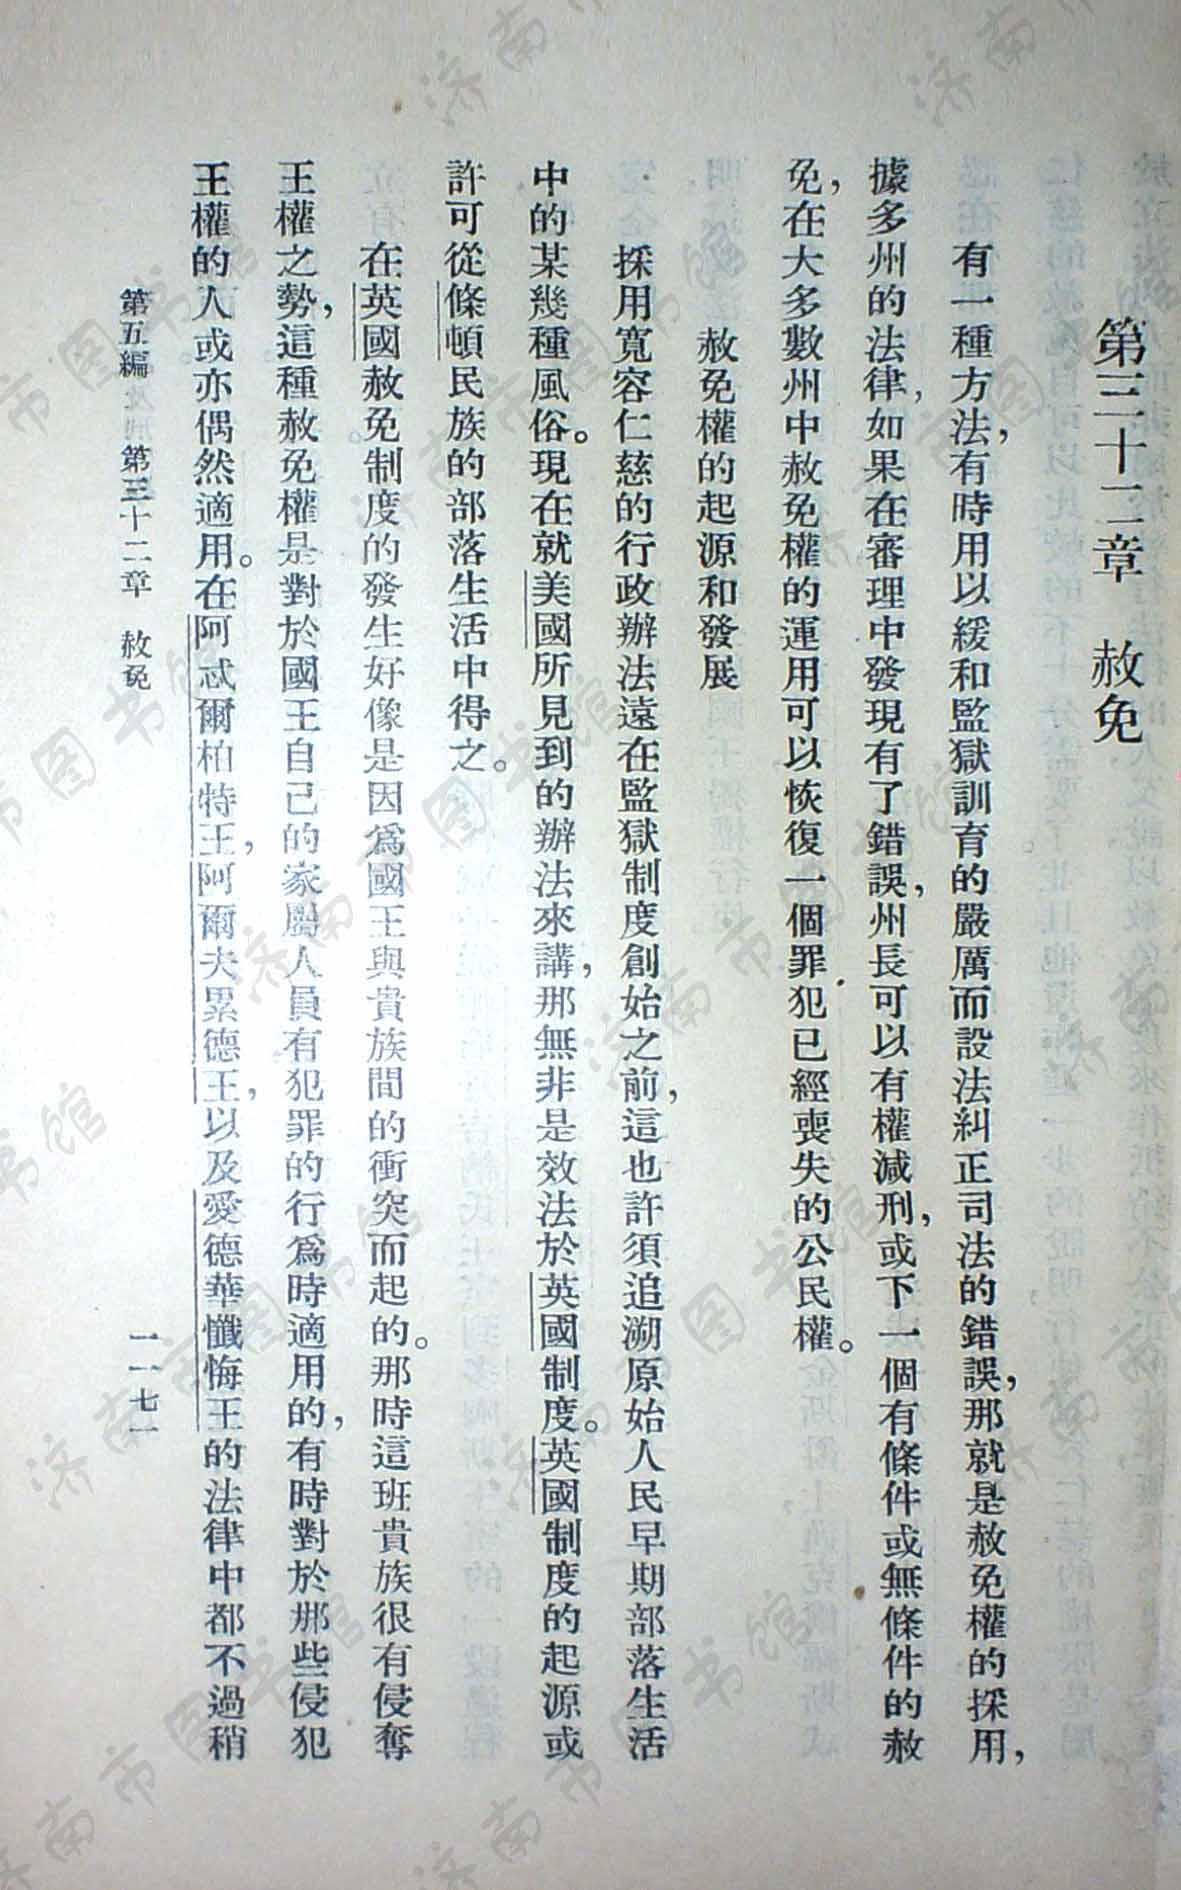 第三十二章　赦免
有一種方法，有時用以緩和監獄訓育的嚴厲而設法糾正司法的錯誤，那就是赦免權的採用，
據多州的法律，如果在審理中發現有了錯誤，州長可以有權減刑，或下一個有條件或無條件的赦
免，在大多數州中赦免權的運用可以恢復一個罪犯已經喪失的公民權。
赦免權的起源和發展
採用寬容仁慈的行政辦法遠在監獄制度創始之前，這也許須追溯原始人民早期部落生活
中的某幾種風俗。現在就美國所見到的辦法來講，那無非是效法於英國制度。英國制度的起源或
許可從條頓民族的部落生活中得之。
在英國赦免制度的發生好像是因爲國王與貴族間的衝突而起的。那時這班貴族很有侵奪
王權之勢，這種赦免權是對於國王自己的家屬人員有犯罪的行爲時適用的，有時對於那些侵犯
王權的人或亦偶然適用。在阿忒爾柏特王，阿爾夫累德王，以及愛德華懺悔王的法律中都不過稍
第五編　第三十二章　赦免
一一七一
济南市图书馆